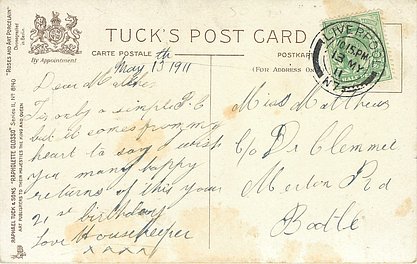 TUCK'S POST CARD
CARTE POSTALE
POSTKARTE
(FOR ADDRESS ONLY)
By Appointment
"ROSES AND ART PORCELAIN"
RAPHAEL TUCK & SONS' "RAPHOLETTE GLOSSO"
ART PUBLISHERS TO THEIR MAJESTIES THE KING AND QUEEN
LIVERPOOL
10.15 PM
13 MY
11
May 13th 1911
Dear
Tis only a simple P.C
but it comes from my
heart to say I wish
you many happy
returns of this your
21st birthday
Love Housekeeper
^ ^ ^ ^
Miss Matthews
C/o Dr Clemmel
Merton Rd
Bootle